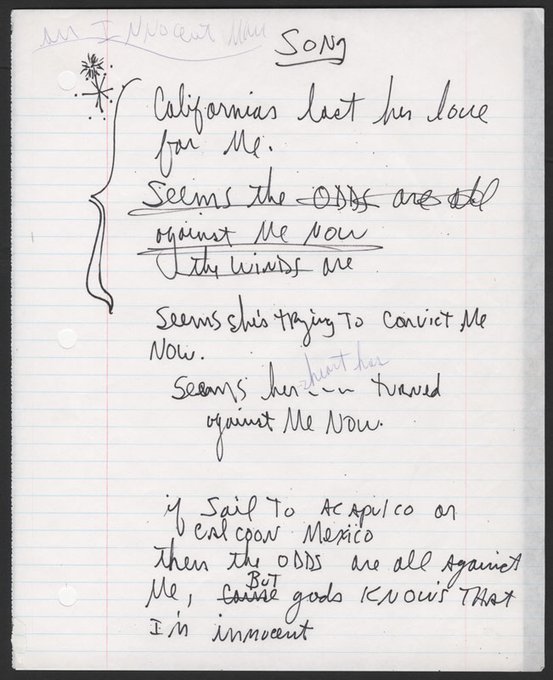 an Innocent Man
SONG
Californias lost her love
for Me.
Seems the ODDS are all
against Me Now
the WINDS are
Seems she's trying To Convict Me
Now.
heart has
Seems her --- turned
against Me Now.
if Sail To ACApulco or
Mexico
then the ODDS are all Against
BUT
Me, Cause gods KNOWS THAT
I'm innocent